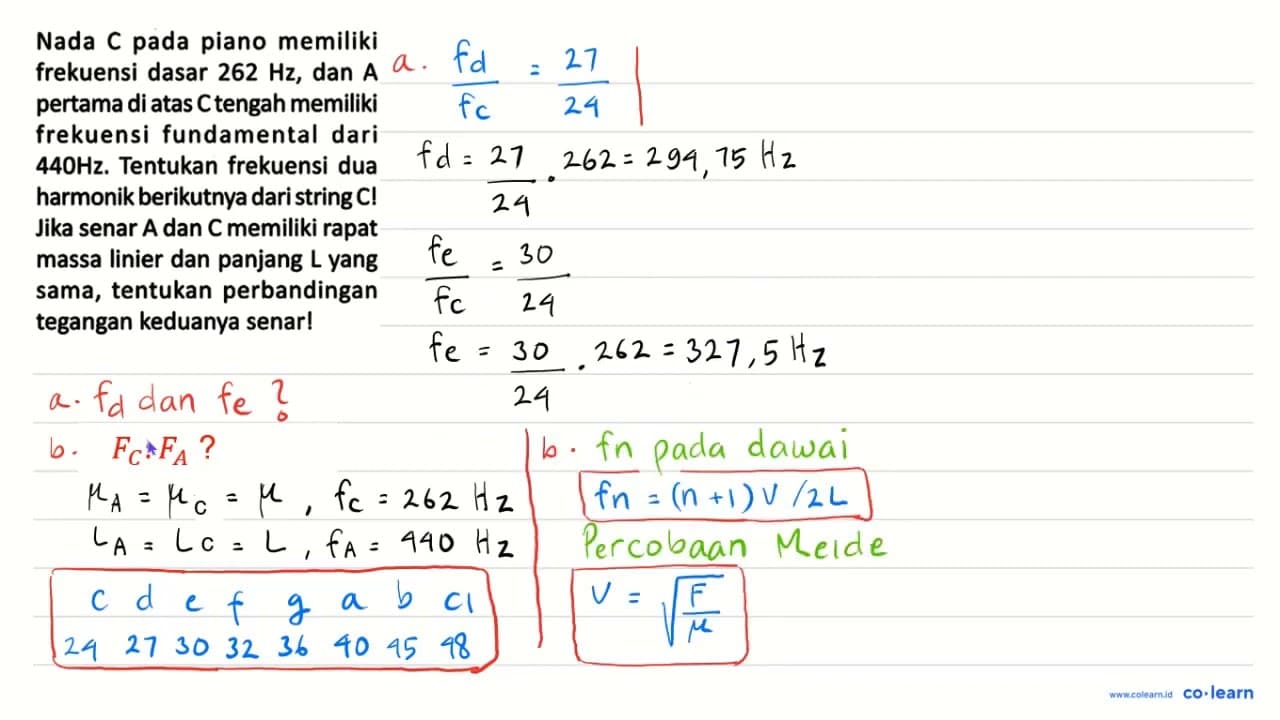 Nada C pada piano memiliki
frekuensi dasar 262 Hz, dan A
pertama di atas C tengah memiliki
frekuensi fundamental dari
440Hz. Tentukan frekuensi dua
harmonik berikutnya dari string C!
Jika senar A dan C memiliki rapat
massa linier dan panjang L yang
sama, tentukan perbandingan
tegangan keduanya senar!
a. fd/fc = 27/24
fd = 27/24 . 262 = 294,75 Hz
fe/fc = 30/24
fe = 30/24 . 262 = 327,5 Hz
a. fd dan fe ?
b. F_C : F_A ?
μ_A = μ_C = μ , fc = 262 Hz
L_A = L_C = L , f_A = 440 Hz
c d e f g a b c1
24 27 30 32 36 40 45 48
b. fn pada dawai
fn = (n+1) V /2L
Percobaan Melde
V = √(F/μ)
www.colearn.id co·learn